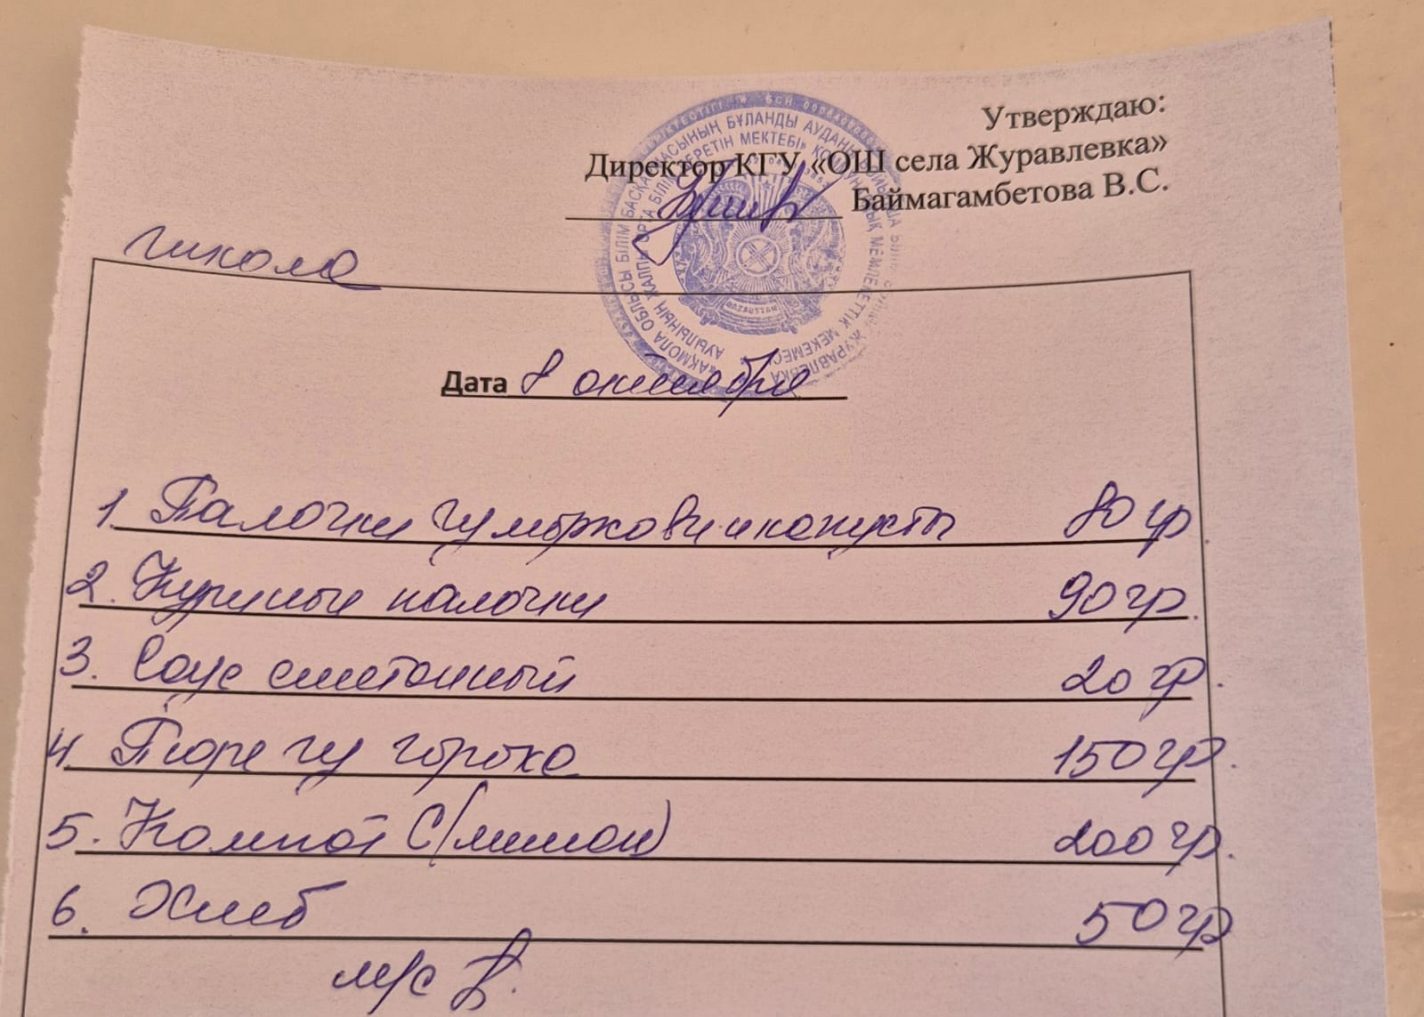 Утверждаю:
Директор КГУ «ОШ села Журавлевка»
Баймагамбетова В.С.
школа
Дата 8 октября
1 Палочки из моркови и капусты 80 гр
2. Куриные палочки 90 гр.
3. Соус сметанный 20 гр.
4. Пюре из гороха 150 гр.
5. Компот С (лимон) 200 гр.
6. Хлеб 50 гр
м/с